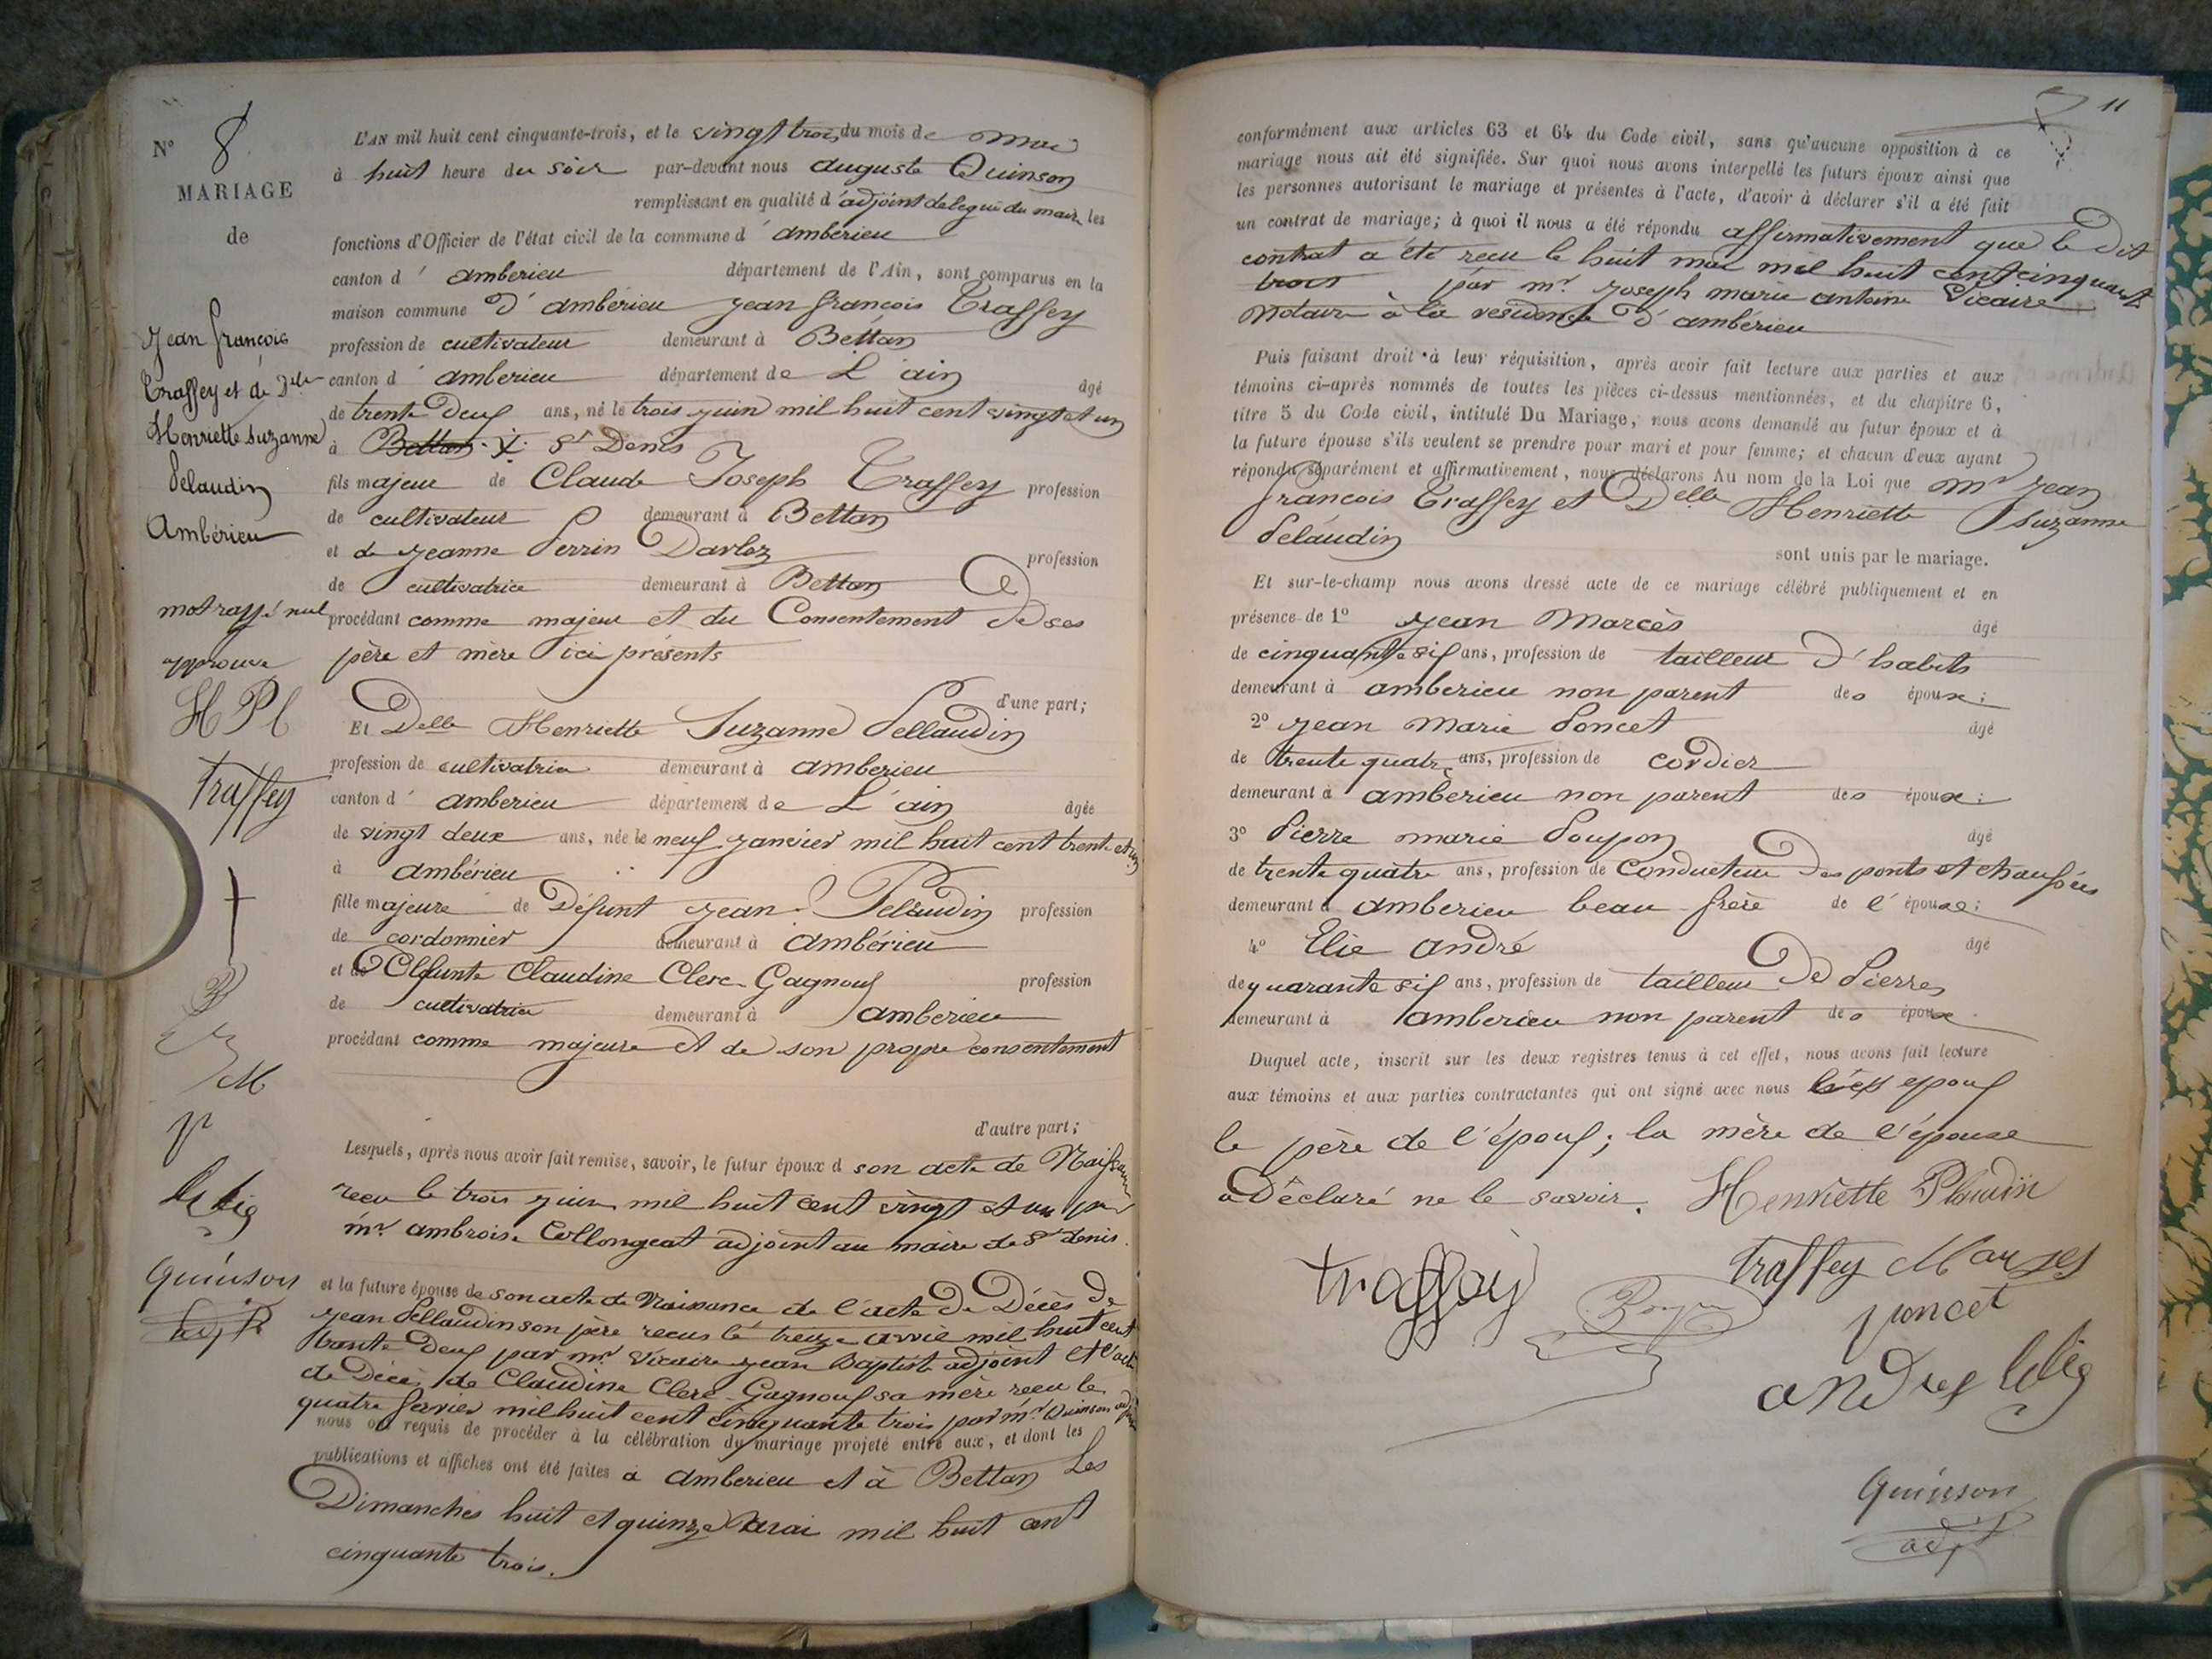 N° 8
MARIAGE
de
Jean françois
Traffey et de Delle
Henriette Suzanne
Pelaudin
Ambérieu
mot rayé nul
approuvé
H Pl
Traffey
M
P
Quinson
adjt
L'AN mil huit cent cinquante-trois, et le vingt trois du mois de mai
à huit heure du soir par-devant nous auguste Quinson
remplissant en qualité d'adjoint delegué du maire les
fonctions d'Officier de l'état civil de la commune d'amberieu
canton d'amberieu département de l'Ain, sont comparus en la
maison commune d'ambérieu Jean françois Traffey
profession de cultivateur demeurant à Bettan
canton d'amberieu département de L'ain âgé
de trente Deux ans, né le trois juin mil huit cent vingt et un
à Bettan X St Denis
fils majeur de Claude Joseph Traffey profession
de cultivateur demeurant à Bettan
et de jeanne Perrin Darloz profession
de cultivatrice demeurant à Bettan
procédant comme majeur et du Consentement De ses
père et mère ici présents
d'une part;
Et Delle Henriette Suzanne Pellaudin
profession de cultivatrice demeurant à amberieu
canton d'amberieu département de L'ain âgée
de vingt deux ans, née le neuf janvier mil huit cent trente et un
à ambérieu
fille majeure de Défunt jean Pelaudin profession
de cordonnier demeurant à ambérieu
et de Defunte Claudine Clerc-Gagnoux profession
de cultivatrice demeurant à amberieu
procédant comme majeure et de son propre consentement
d'autre part;
Lesquels, après nous avoir fait remise, savoir, le futur époux d son acte de Naissance
recu le trois juin mil huit cent vingt et un par
mr. ambroise Collongeat adjoint au maire de St denis.
et la future épouse de son acte de Naissance de l'acte de Décès de
jean Pellaudin son père recus le treize avril mil huit cent
trente Deux par mr. Vicaire jean Baptiste adjoint et l'acte
de Décès de Claudine Clerc-Gagnoux sa mère recu le
quatre fevrier mil huit cent cinquante trois par mr. Quinson adjt
nous ont requis de procéder à la célébration du mariage projeté entre eux, et dont les
publications et affiches ont été faites à amberieu et à Bettan Les
Dimanches huit et quinze mai mil huit cent
cinquante trois.
11
conformément aux articles 63 et 64 du Code civil, sans qu'aucune opposition à ce
mariage nous ait été signifiée. Sur quoi nous avons interpellé les futurs époux ainsi que
les personnes autorisant le mariage et présentes à l'acte, d'avoir à déclarer s'il a été fait
un contrat de mariage; à quoi il nous a été répondu affirmativement que le dit
contrat a été recu le huit mai mil huit cent cinquante
trois par mr. Joseph marie antoine Vicaire
Notaire à la residence d'ambérieu
Puis faisant droit à leur réquisition, après avoir fait lecture aux parties et aux
témoins ci-après nommés de toutes les pièces ci-dessus mentionnées, et du chapitre 6,
titre 5 du Code civil, intitulé Du Mariage, nous avons demandé au futur époux et à
la future épouse s'ils veulent se prendre pour mari et pour femme; et chacun d'eux ayant
répondu séparément et affirmativement, nous déclarons Au nom de la Loi que mr Jean
françois Traffey et Delle Henriette Suzanne
Pelaudin
sont unis par le mariage.
Et sur-le-champ nous avons dressé acte de ce mariage célébré publiquement et en
présence de 1° jean Marcès âgé
de cinquante six ans, profession de tailleur d'habits
demeurant à amberieu non parent des époux;
2° jean Marie Poncet âgé
de trente quatre ans, profession de cordier
demeurant à amberieu non parent des époux;
3° Pierre marie Poupon âgé
de trente quatre ans, profession de Conducteur Des ponts et chaussées
demeurant à amberieu beau frère de l'épouse;
4° Elie andré âgé
de quarante six ans, profession de tailleur De Pierres
demeurant à amberieu non parent des époux
Duquel acte, inscrit sur les deux registres tenus à cet effet, nous avons fait lecture
aux témoins et aux parties contractantes qui ont signé avec nous les epoux
le père de l'époux; la mère de l'épouse
a Déclaré ne le savoir. Henriette Plaudin
traffey Traffey Marses
poncet
andref Elie
Quinson
adjt